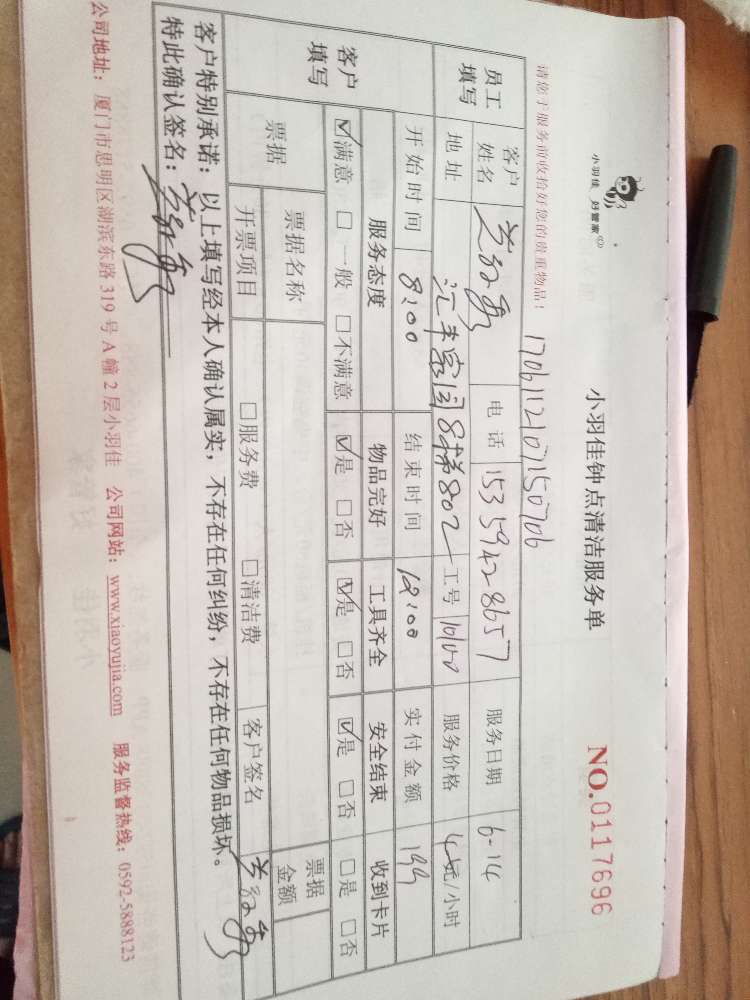 小羽佳 好管家
小羽佳钟点清洁服务单
NO.0117696
请您于服务前收拾好您的贵重物品！
170611210715070​6
员工填写
客户姓名
电话 15359428657
服务日期 6-14
地址 汇丰家园8梯802
工号
服务价格 /小时
客户填写
开始时间 8:00
结束时间 12:00
实付金额
服务态度 物品完好 工具齐全 安全结束 收到卡片
☑满意 □一般 □不满意 ☑是 □否 ☑是 □否 ☑是 □否 □是 □否
票据 票据名称 票据金额
开票项目 □服务费 □清洁费 客户签名
客户特别承诺：以上填写经本人确认属实，不存在任何纠纷，不存在任何物品损坏。
特此确认签名：
公司地址：厦门市思明区湖滨东路319号A幢2层小羽佳 公司网站：www.xiaoyujia.com 服务监督热线：0592-5888123